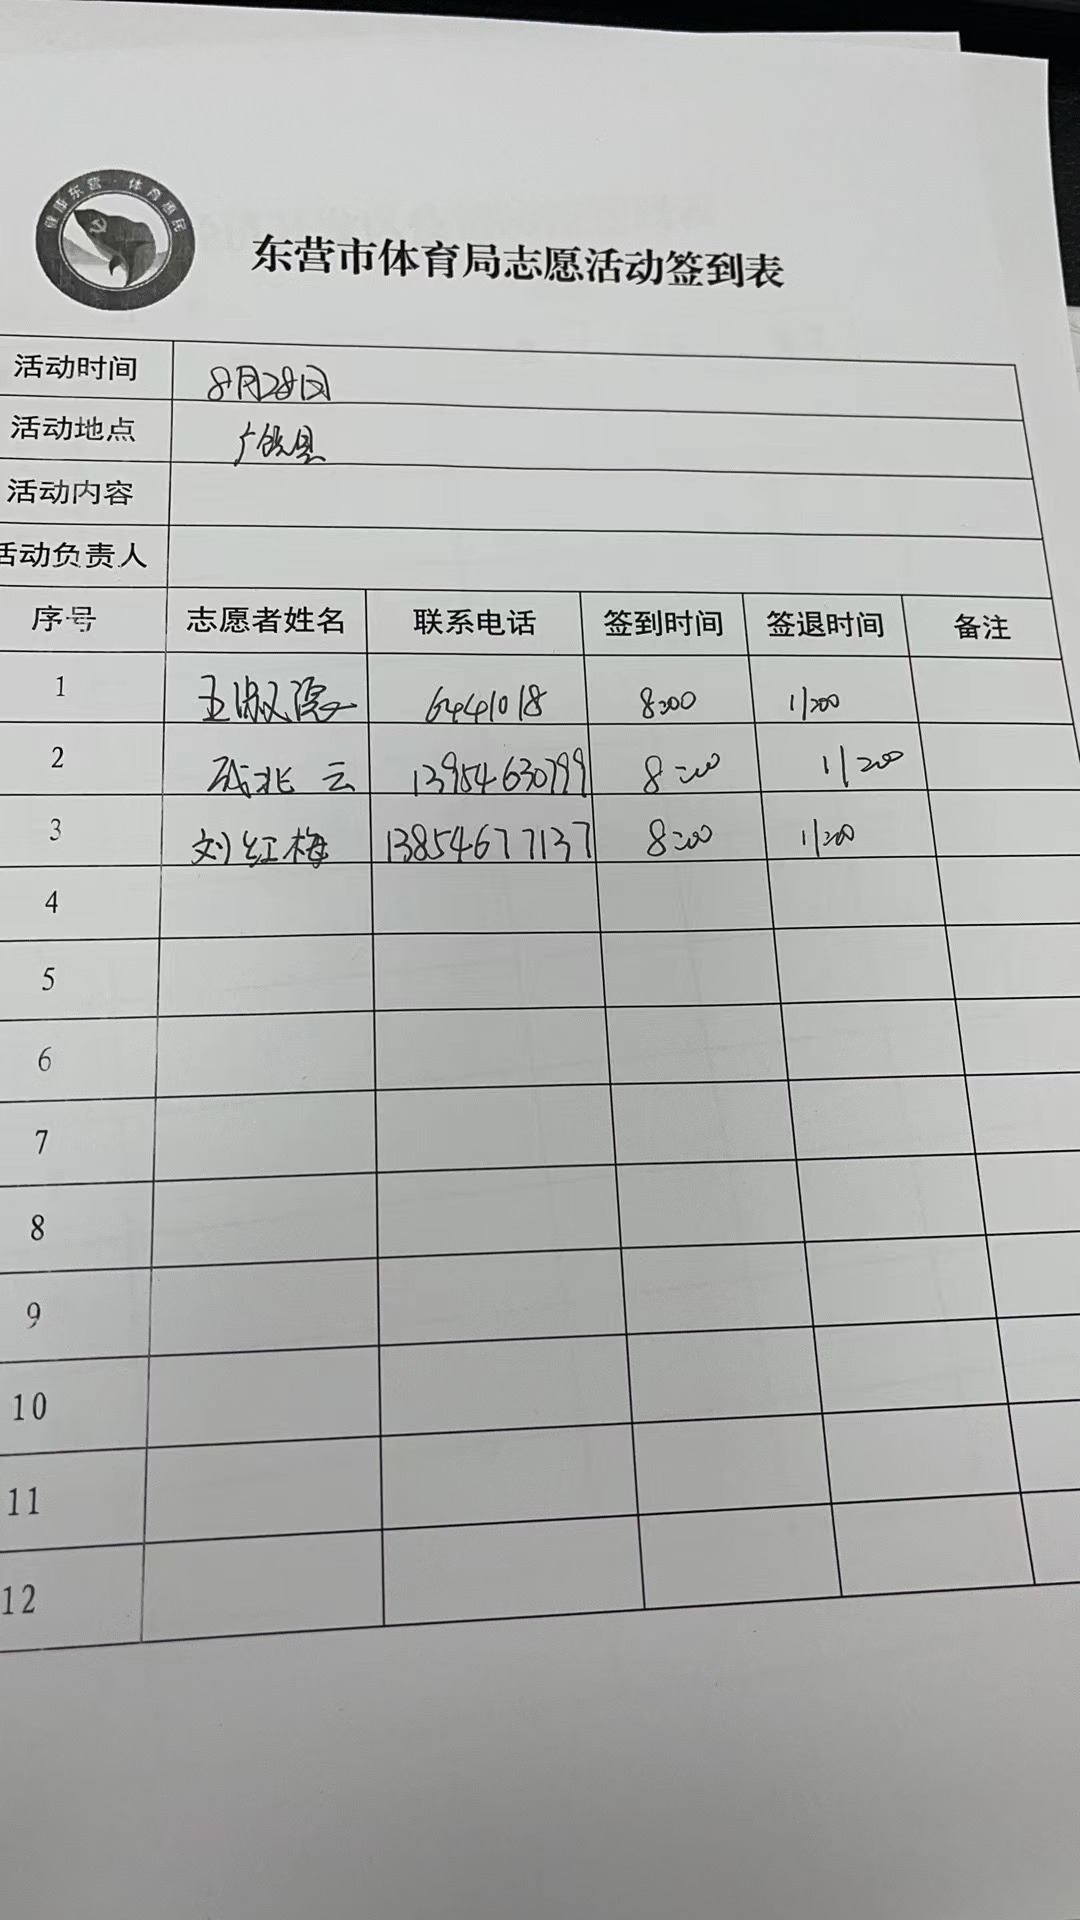 健康东营·体育惠民
东营市体育局志愿活动签到表
活动时间 8月28日
活动地点 广饶县
活动内容
活动负责人
序号 志愿者姓名 联系电话 签到时间 签退时间 备注
1 王淑霞 6441018 8:00 11:00
2 成兆云 13954630799 8:00 11:00
3 刘红梅 13854677137 8:00 11:00
4
5
6
7
8
9
10
11
12